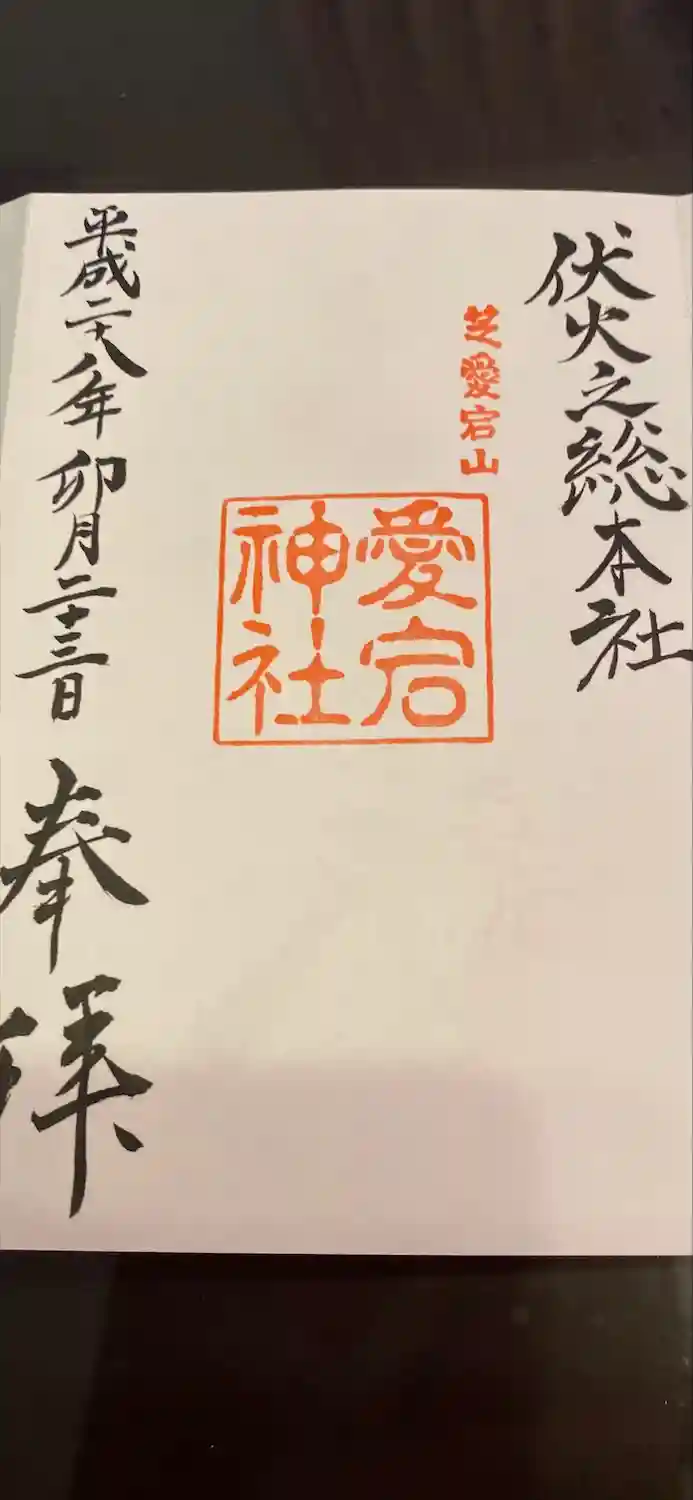 伏火之総本社
芝愛宕山
愛宕
神社
平成二十八年卯月二十三日
奉拝